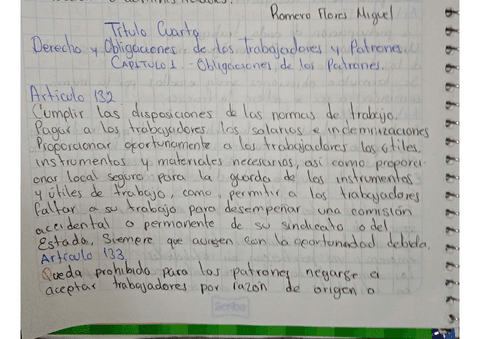 Romero Flores Miguel
Titulo Cuarto
Derecho y Obligaciones de los Trabajadores y Patrones.
CAPITULO 1 - Obligaciones de los Patrones.
Articulo 132
Cumplir las disposiciones de las normas de trabajo.
Pagar a los trabajadores los salarios e indemnizaciones
Proporcionar oportunamente a los trabajadores los útiles,
instrumentos y materiales necesarios, así como proporci-
onar local seguro para la guarda de los instrumentos
y útiles de trabajo, como, permitir a los trabajadores
faltar a su trabajo para desempeñar una comisión
accidental o permanente de su sindicato o del
Estado, Siempre que avisen con la oportunidad debida.
Articulo 133
Queda prohibido para los patrones negarse a
aceptar trabajadores por razón de origen o
Scribe